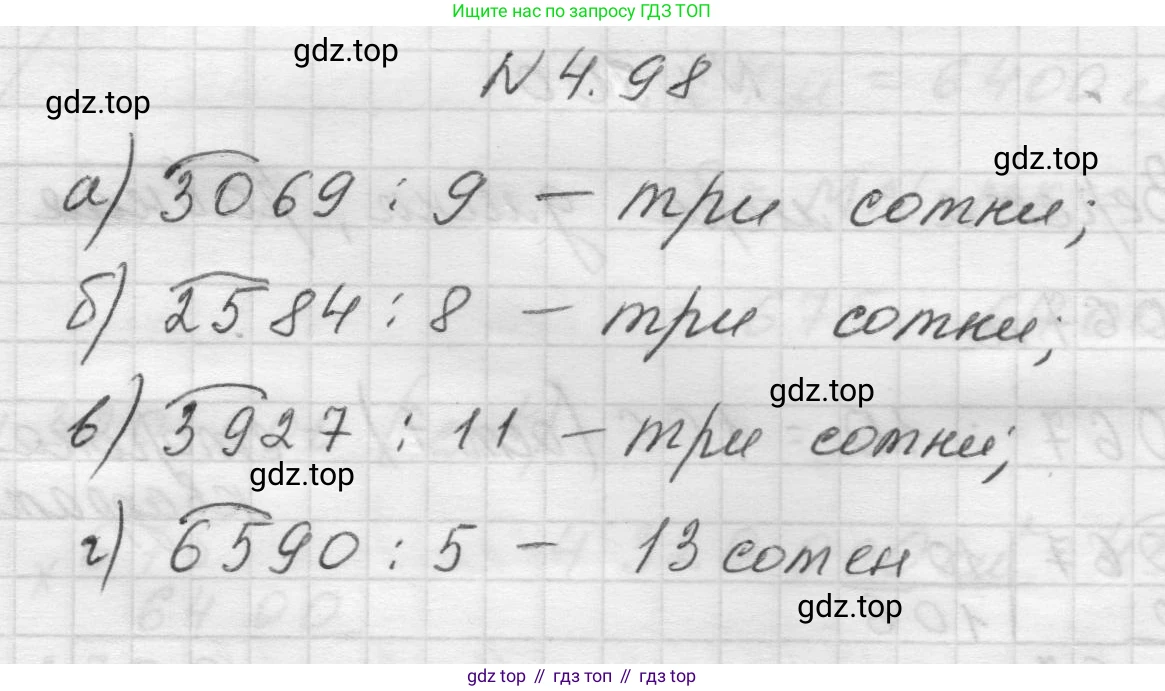 Ищите нас по запросу ГДЗ ТОП
gdz.top
N 4.98
gdz.top
gdz.top
а) 3069 : 9 — три сотни;
б) 2584 : 8 — три сотни;
gdz.top
в) 3927 : 11 — три сотни;
gdz.top
г) 6590 : 5 — 13 сотен
gdz.top
gdz top // гдз топ // gdz top